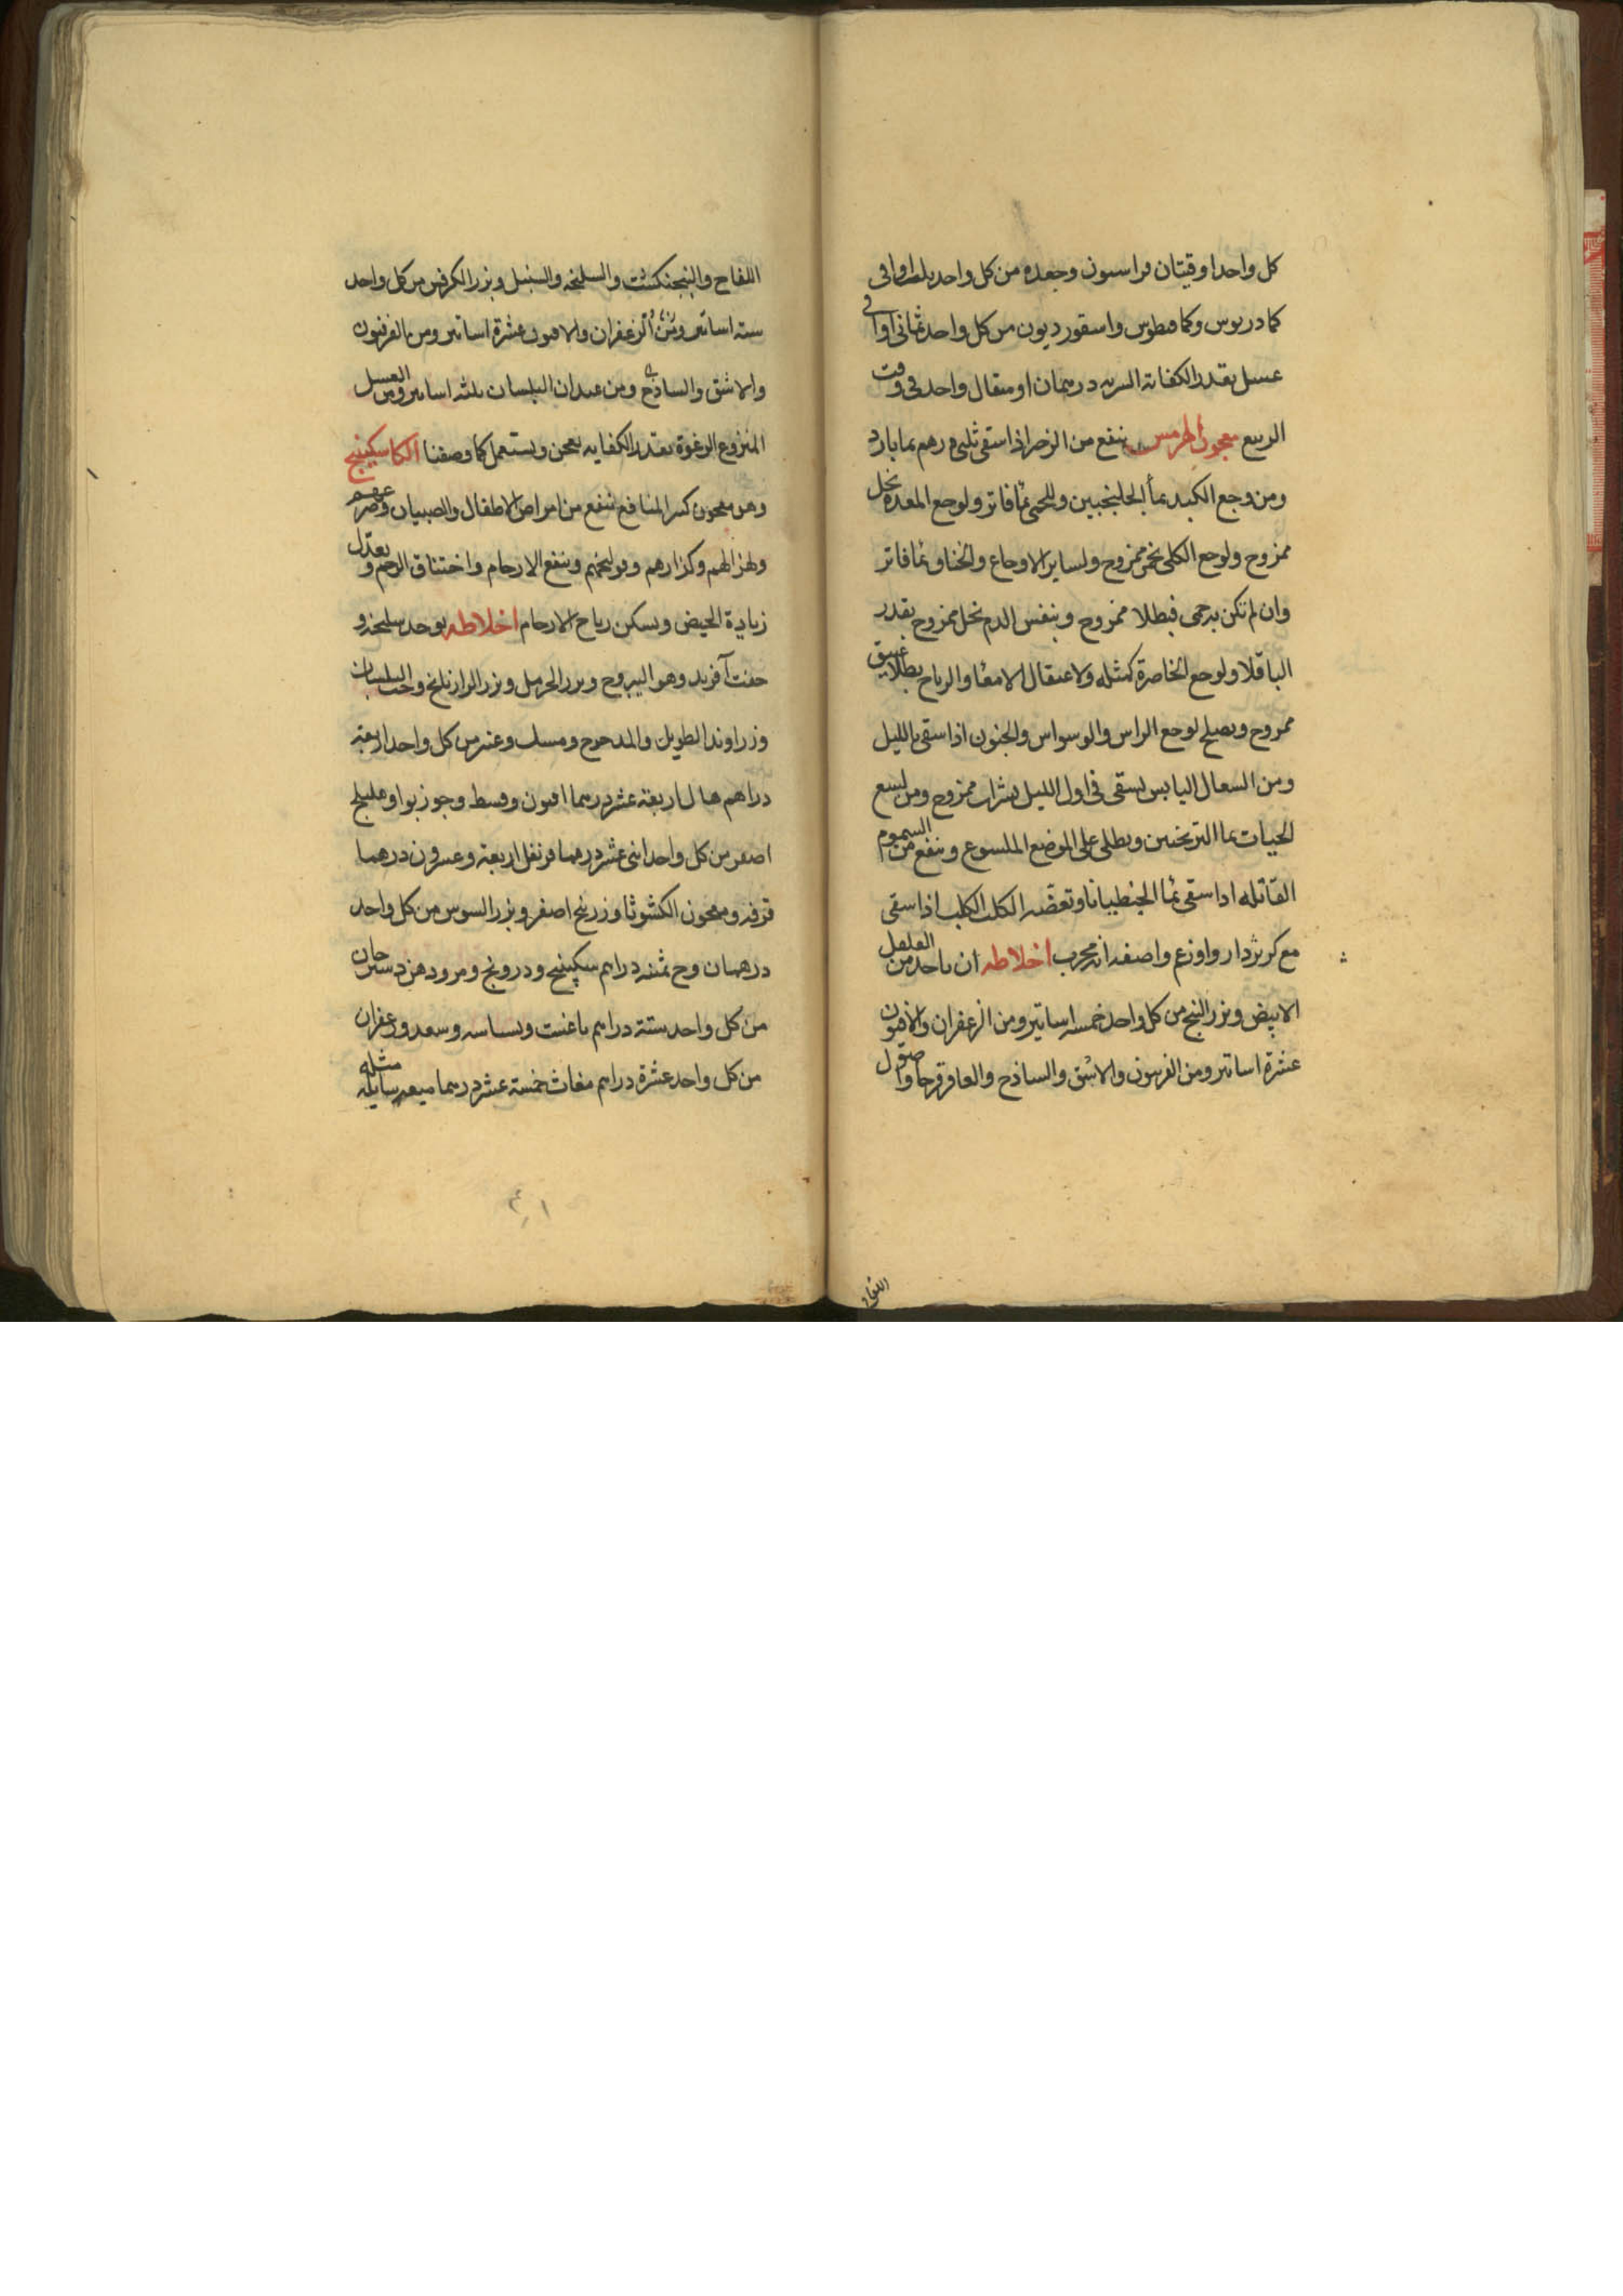 كل واحد اوقيتان فراسيون وجعده من كل واحد اواقى
كمادريوس وكمافيطوس واسقورديون من كل واحد ثمانى اواقى
عسل بقدر الكفاية الشربه درهمان او مثقال واحد فى وقت
الربيع معجون الهرمس ينفع من الزحير اذا سقى ثلثى درهم بما بارد
ومن وجع الكبد بما الجلنجبين وللحمى بما فاتر ولوجع المعده بخل
ممزوج ولوجع الكلى بخمر ممزوج ولساير الاوجاع والخناق بما فاتر
وان لم تكن به حمى فبطلا ممزوج وبنفس الدم بخل ممزوج بقدر
الباقلا ولوجع الخاصرة كمثله ولاعتقال الامعا والرياح بطلا عتيق
ممزوج ويصلح لوجع الراس والوسواس والجنون اذا سقى بالليل
ومن السعال اليابس يسقى فى اول الليل بشراب ممزوج ومن لسع
الحيات بما الترنجبين ويطلى على الموضع الملسوع وينفع من السموم
القاتله اذا سقى بما الجنطيانا وتعضه الكلب الكلب اذا سقى
مع واصفه انه مجرب اخلاطه ان ياخذ من الفلفل
الابيض وبزر البنج من كل واحد خمسه اساتير ومن الزعفران والافيون
عشرة اساتير ومن الفربيون والاشق والساذج والعاقرقرحا واصول
اللفاح
اللفاح والبنجنكشت والسليخه والسنبل وبزر الكرفس من كل واحد
سته اساتير ومن الزعفران والافيون عشرة اساتير ومن الفربيون
والاشق والساذج ومن عيدان البلسان ثلثه اساتير ومن العسل
المنزوع الرغوة بقدر الكفايه يعجن ويستعمل كما وصفنا الكاسكبينج
وهو معجون كثير المنافع ينفع من امراض الاطفال والصبيان وصرعهم
ولهزالهم وكزازهم وقولنجهم وينفع الارحام واختناق الرحم ويعدل
زيادة الحيض ويسكن رياح الارحام اخلاطه يوخذ سليخه و
جفت آفريد وهو اليبروح وبزر الحرمل وبزر الرازيانج وحب البلسان
وزراوند الطويل والمدحرج ومسك وعنبر من كل واحد اربعة
دراهم هال اربعة عشر درهما افيون وقسط وجوزبوا وهليلج
اصفر من كل واحد اثنى عشر درهما قرنفل اربعة وعشرون درهما
قرفه ومعجون الكشوثا وزرنيخ اصفر وبزر السوس من كل واحد
درهمان وج ثمنيه دراهم سكبينج ودرونج ومرود
من كل واحد ستة دراهم باغنست وبسباسه وسعد وزعفران
من كل واحد عشرة دراهم مغاث خمسة عشر درهما ميعه سايله مثله